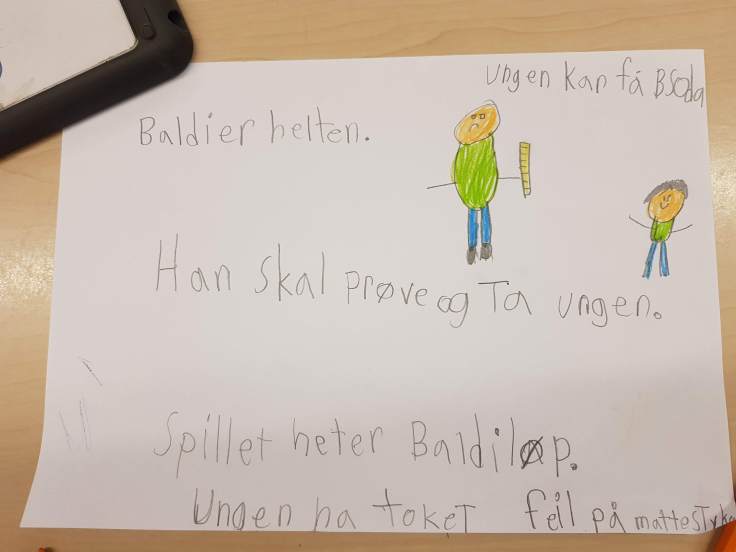 Ungen kan få Bsoda
Baldi er helten.
Han skal prøve og Ta ungen.
Spillet heter Baldiløp.
Ungen ha tokeT feil på